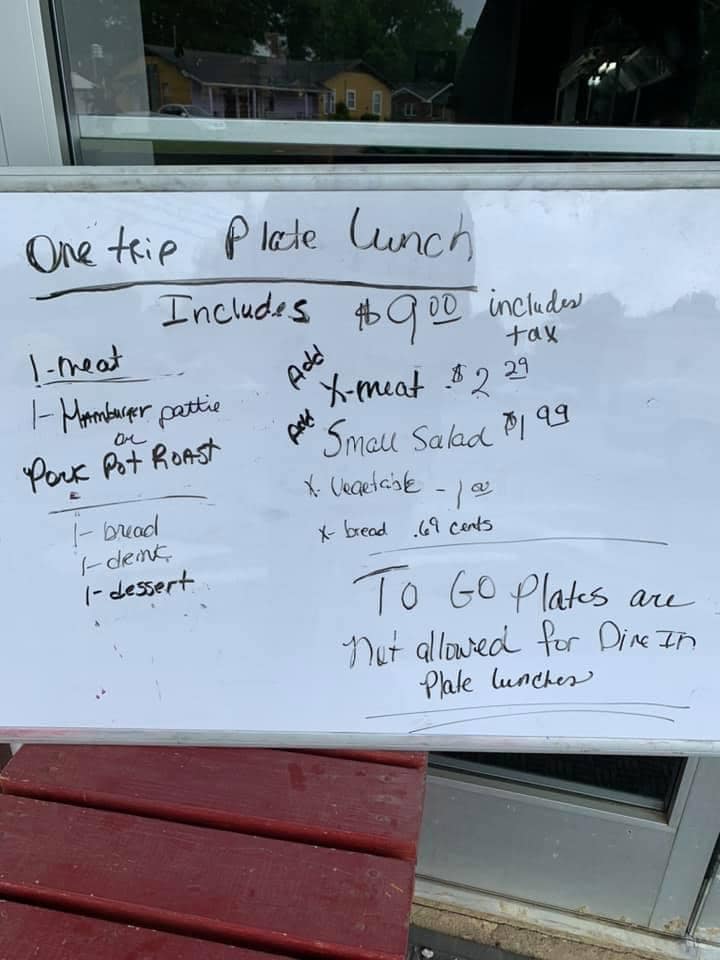 One trip Plate Lunch
Includes $9.00 includes
tax
1-meat
1-Hamburger pattie
or
Pork Pot Roast
1-bread
1-dessert
Add X-meat $2.29
Add Small Salad $1.99
X-Vegetable - 1.00
X-bread .69 cents
To Go Plates are
not allowed for Dine In
Plate lunches